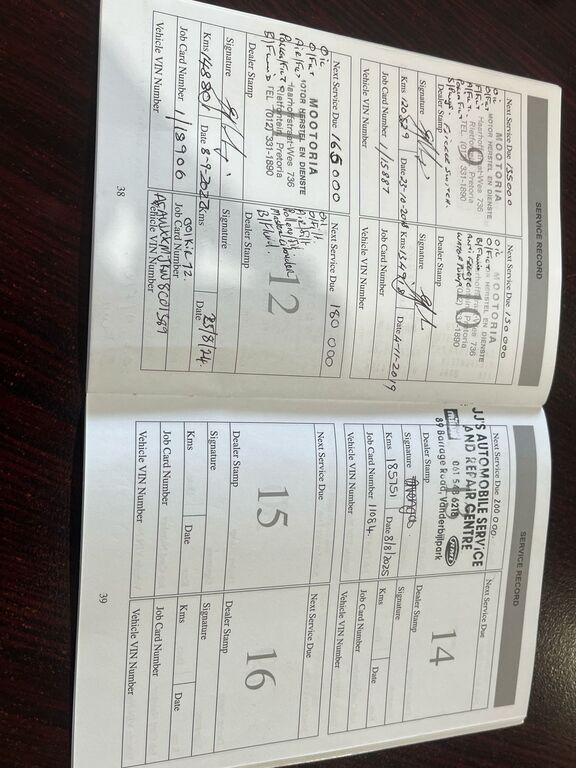 SERVICE RECORD
Next Service Due 135000
Oil
O/Filt
MOOTORIA
MOTOR HERSTEL EN DIENSTE
Haarhoffstraat-Wes 736
Rietfontein Pretoria
TEL (012) 331-1890
Dealer Stamp
9
Signature
Kms 120529 Date 23-10-2018
Job Card Number 115887
Vehicle VIN Number
Next Service Due 150000
Oil
O/Filt
MOOTORIA
MOTOR HERSTEL EN DIENSTE
Haarhoffstraat-Wes 736
Rietfontein Pretoria
TEL (012) 331-1890
Anti Freeze
Water Pump
Dealer Stamp
10
Signature
Kms 134918 Date 4-11-2019
Job Card Number
Vehicle VIN Number
Next Service Due 165000
Oil
O/Filt
Air/Filt
MOOTORIA
MOTOR HERSTEL EN DIENSTE
Haarhoffstraat-Wes 736
Rietfontein Pretoria
TEL (012) 331-1890
Dealer Stamp
Signature
Kms 148801 Date 8-9-2022
Job Card Number 118906
Vehicle VIN Number
Next Service Due 180 000
Oil
O/Filt.
Air/Filt
Pollen/Filt.
B/Fluid.
12
Dealer Stamp
Signature
Kms Date 25/8/24.
Job Card Number
Vehicle VIN Number
38
SERVICE RECORD
Next Service Due 200 000
JJ'S AUTOMOBILE SERVICE
AND REPAIR CENTRE
061 548 6218
89 Barrage Road, Vanderbijlpark
Dealer Stamp
Signature
Kms 185751 Date 8/8/2025
Job Card Number 11084
Vehicle VIN Number
Next Service Due
14
Dealer Stamp
Signature
Kms Date
Job Card Number
Vehicle VIN Number
Next Service Due
15
Dealer Stamp
Signature
Kms Date
Job Card Number
Vehicle VIN Number
Next Service Due
16
Dealer Stamp
Signature
Kms Date
Job Card Number
Vehicle VIN Number
39